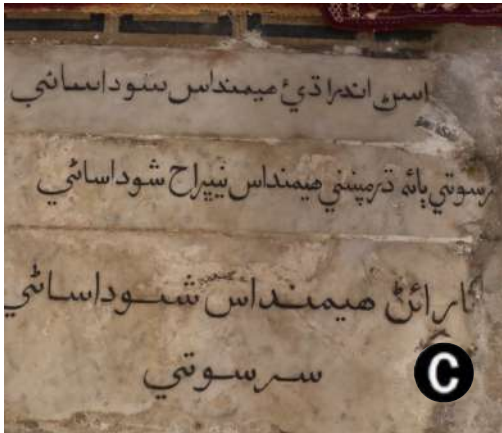 اسن اندرا ڌيءُ هيمنداس سوداساڻي
سرسوتي ٻائي ڌرمپتني هيمنداس نيڀراج شوداساڻي
نارائڻ هيمنداس شوداساڻي
سرسوتي
C